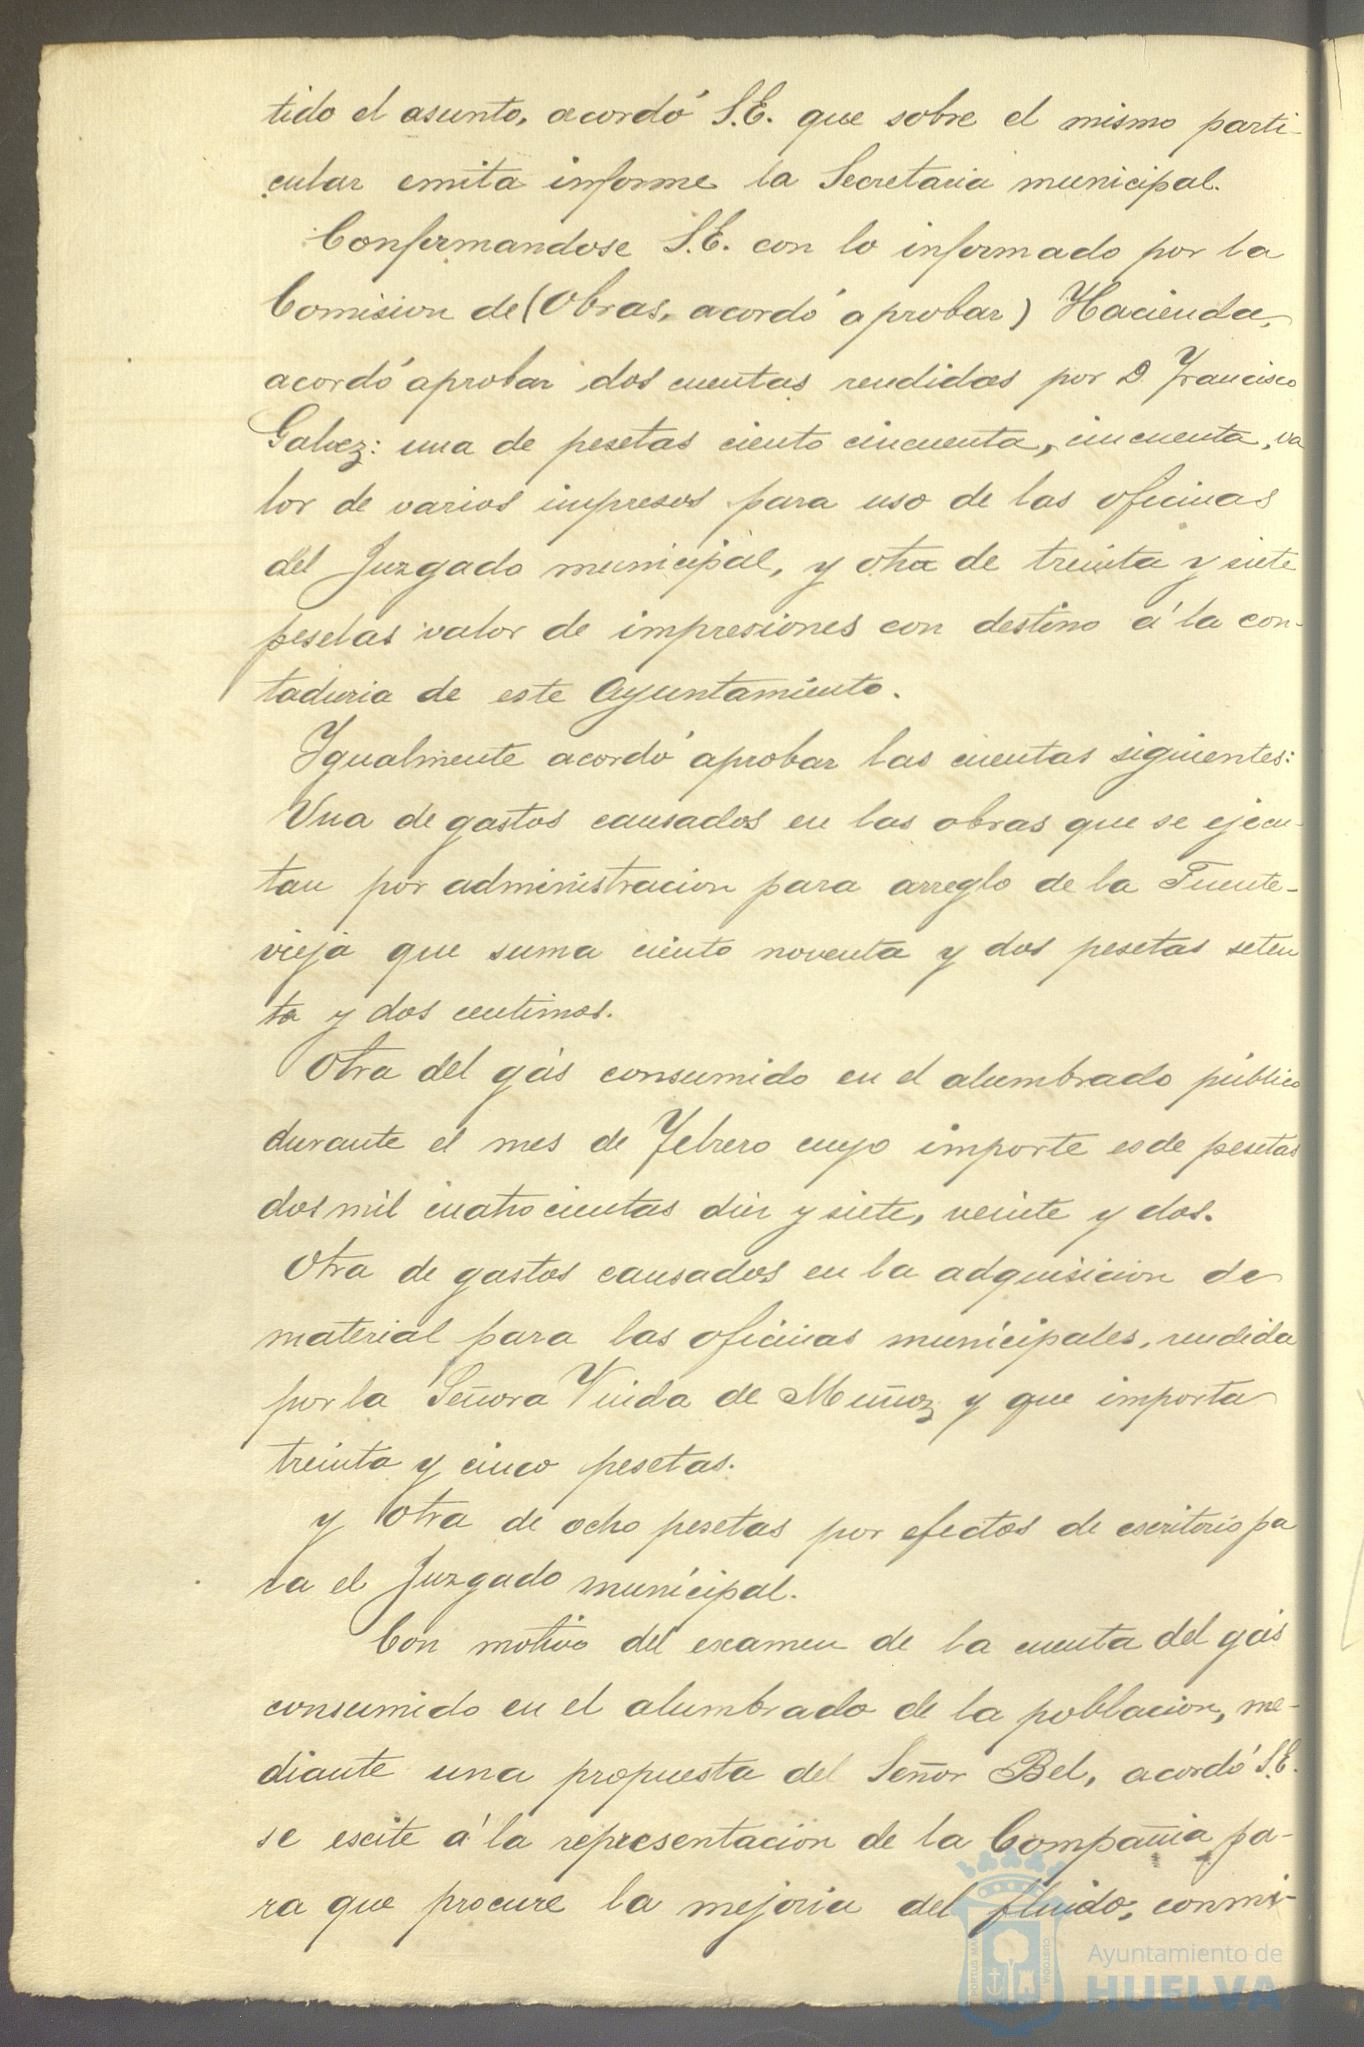 tido el asunto, acordó S.E. que sobre el mismo parti-
cular emita informe la Secretaria municipal.
Confirmandose S.E. con lo informado por la
Comision de (Obras, acordó aprobar) Hacienda,
acordó aprobar dos cuentas rendidas por D. Francisco
Galvez: una de pesetas ciento cincuenta, cincuenta, va
lor de varios impresos para uso de las oficinas
del Juzgado municipal, y otra de treinta y siete
pesetas valor de impresiones con destino á la con-
taduria de este Ayuntamiento.
Igualmente acordó aprobar las cuentas siguientes:
Una de gastos causados en las obras que se ejecu-
tan por administracion para arreglo de la Fuente-
vieja que suma ciento noventa y dos pesetas seten
ta y dos centimos.
Otra del gás consumido en el alumbrado público
durante el mes de Febrero cuyo importe es de pesetas
dos mil cuatrocientas diez y siete, veinte y dos.
Otra de gastos causados en la adquisicion de
material para las oficinas municipales, rendida
por la Señora Viuda de Muñoz y que importa
treinta y cinco pesetas.
y otra de ocho pesetas por efectos de escritorio pa
ra el Juzgado municipal.
Con motivo del examen de la cuenta del gás
consumido en el alumbrado de la poblacion, me-
diante una propuesta del Señor Bel, acordó S.E.
se escite á la representacion de la Compañia pa-
ra que procure la mejoria del fluido, conmi-
PORTUS MA CUSTODIA
Ayuntamiento de
HUELVA